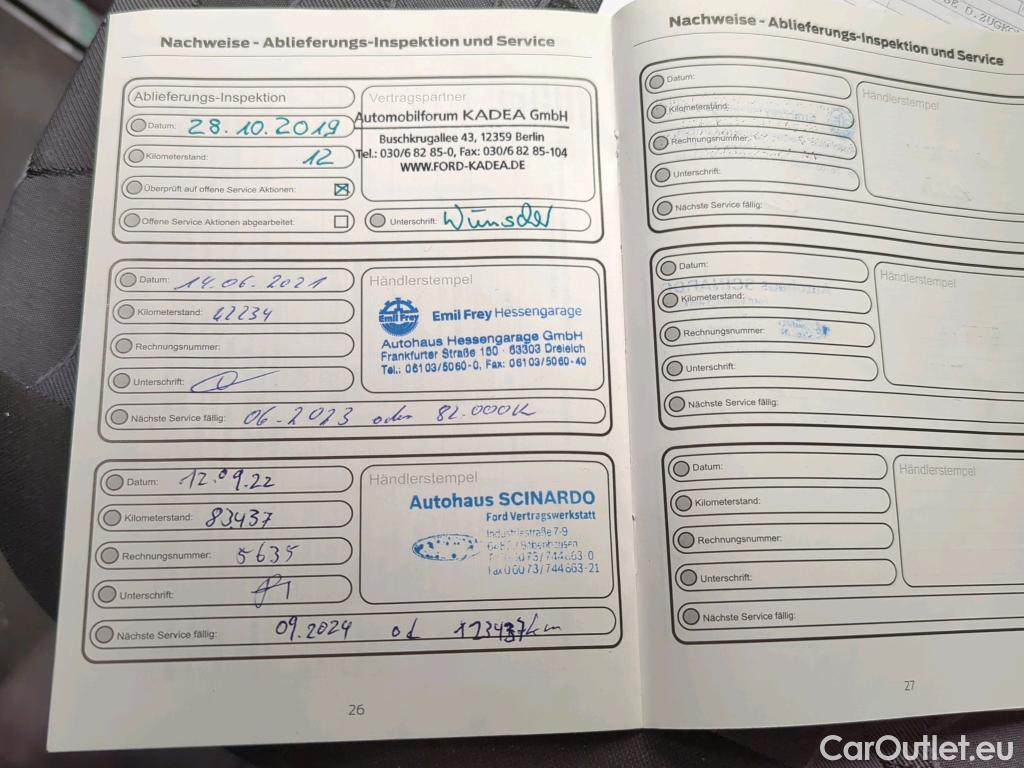 Nachweise - Ablieferungs-Inspektion und Service
Ablieferungs-Inspektion
Datum: 28.10.2019
Kilometerstand: 12
Überprüft auf offene Service Aktionen:
Offene Service Aktionen abgearbeitet:
Vertragspartner
Automobilforum KADEA GmbH
Buschkrugallee 43, 12359 Berlin
Tel.: 030/6 82 85-0, Fax: 030/6 82 85-104
WWW.FORD-KADEA.DE
Unterschrift:
Datum: 14.06.2021
Kilometerstand: 42234
Rechnungsnummer:
Unterschrift:
Nächste Service fällig: 06-2023 oder 82.000K
Händlerstempel
Emil Frey
Emil Frey Hessengarage
Autohaus Hessengarage GmbH
Frankfurter Straße 150 · 63303 Dreieich
Tel.: 06103/5060-0, Fax: 06103/5060-40
Datum: 12.09.22
Kilometerstand: 83437
Rechnungsnummer: 5635
Unterschrift:
Nächste Service fällig: 09.2024 od 123437km
Händlerstempel
Autohaus SCINARDO
Ford Vertragswerkstatt
Industriestraße 7-9
Babenhausen
06073/744663-0
Fax 06073/744663-21
26
Nachweise - Ablieferungs-Inspektion und Service
Datum:
Kilometerstand:
Rechnungsnummer:
Unterschrift:
Nächste Service fällig:
Händlerstempel
Datum:
Kilometerstand:
Rechnungsnummer:
Unterschrift:
Nächste Service fällig:
Händlerstempel
Datum:
Kilometerstand:
Rechnungsnummer:
Unterschrift:
Nächste Service fällig:
Händlerstempel
27
CarOutlet.eu